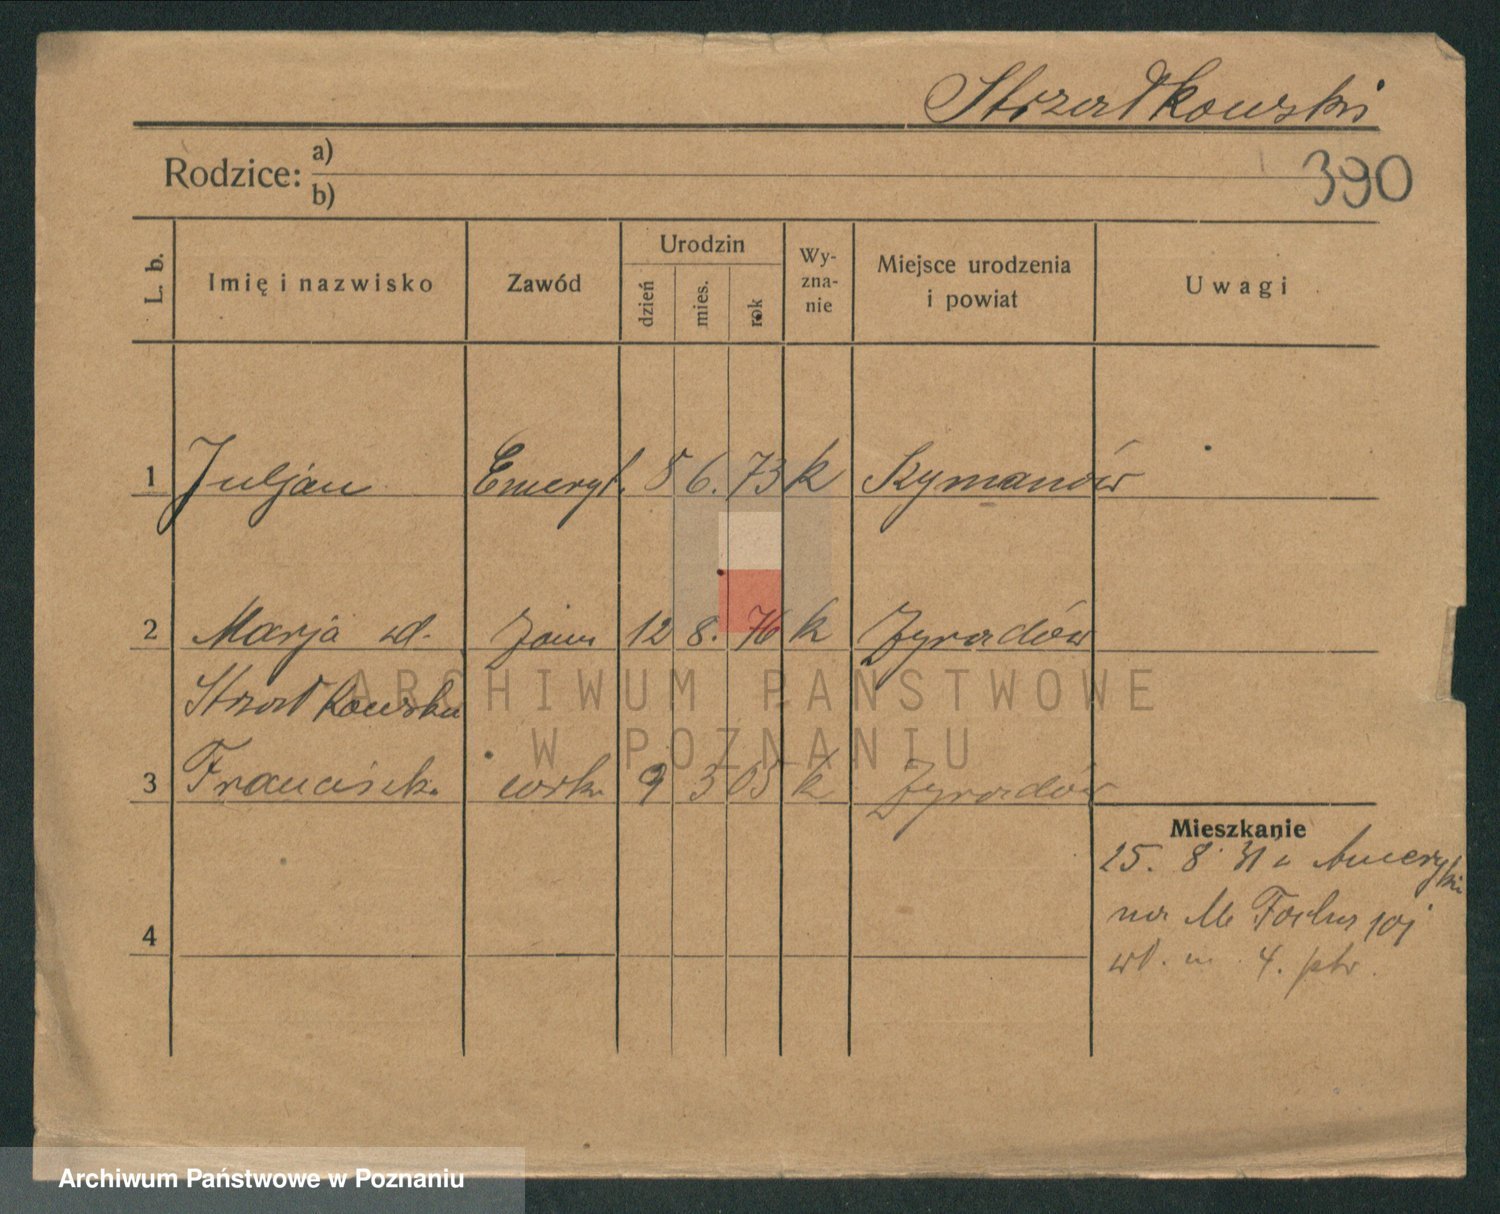 Strzałkowski
390
Rodzice: a)
b)
L. b. Imię i nazwisko Zawód Urodzin dzień mies. rok Wyznanie Miejsce urodzenia i powiat Uwagi
1 Juljan Emeryt. 8 6. 73 k Szymanów
2 Marja zd. żona 12 8. 76 k Żyrardów
Strzałkowska
3 Francisk. córk 9 3 05 k Żyrardów
Mieszkanie
25. 8 31 z Ameryki
na M Focha 101
wł. m. 4. ptr.
4
ARCHIWUM PAŃSTWOWE
W POZNANIU
Archiwum Państwowe w Poznaniu